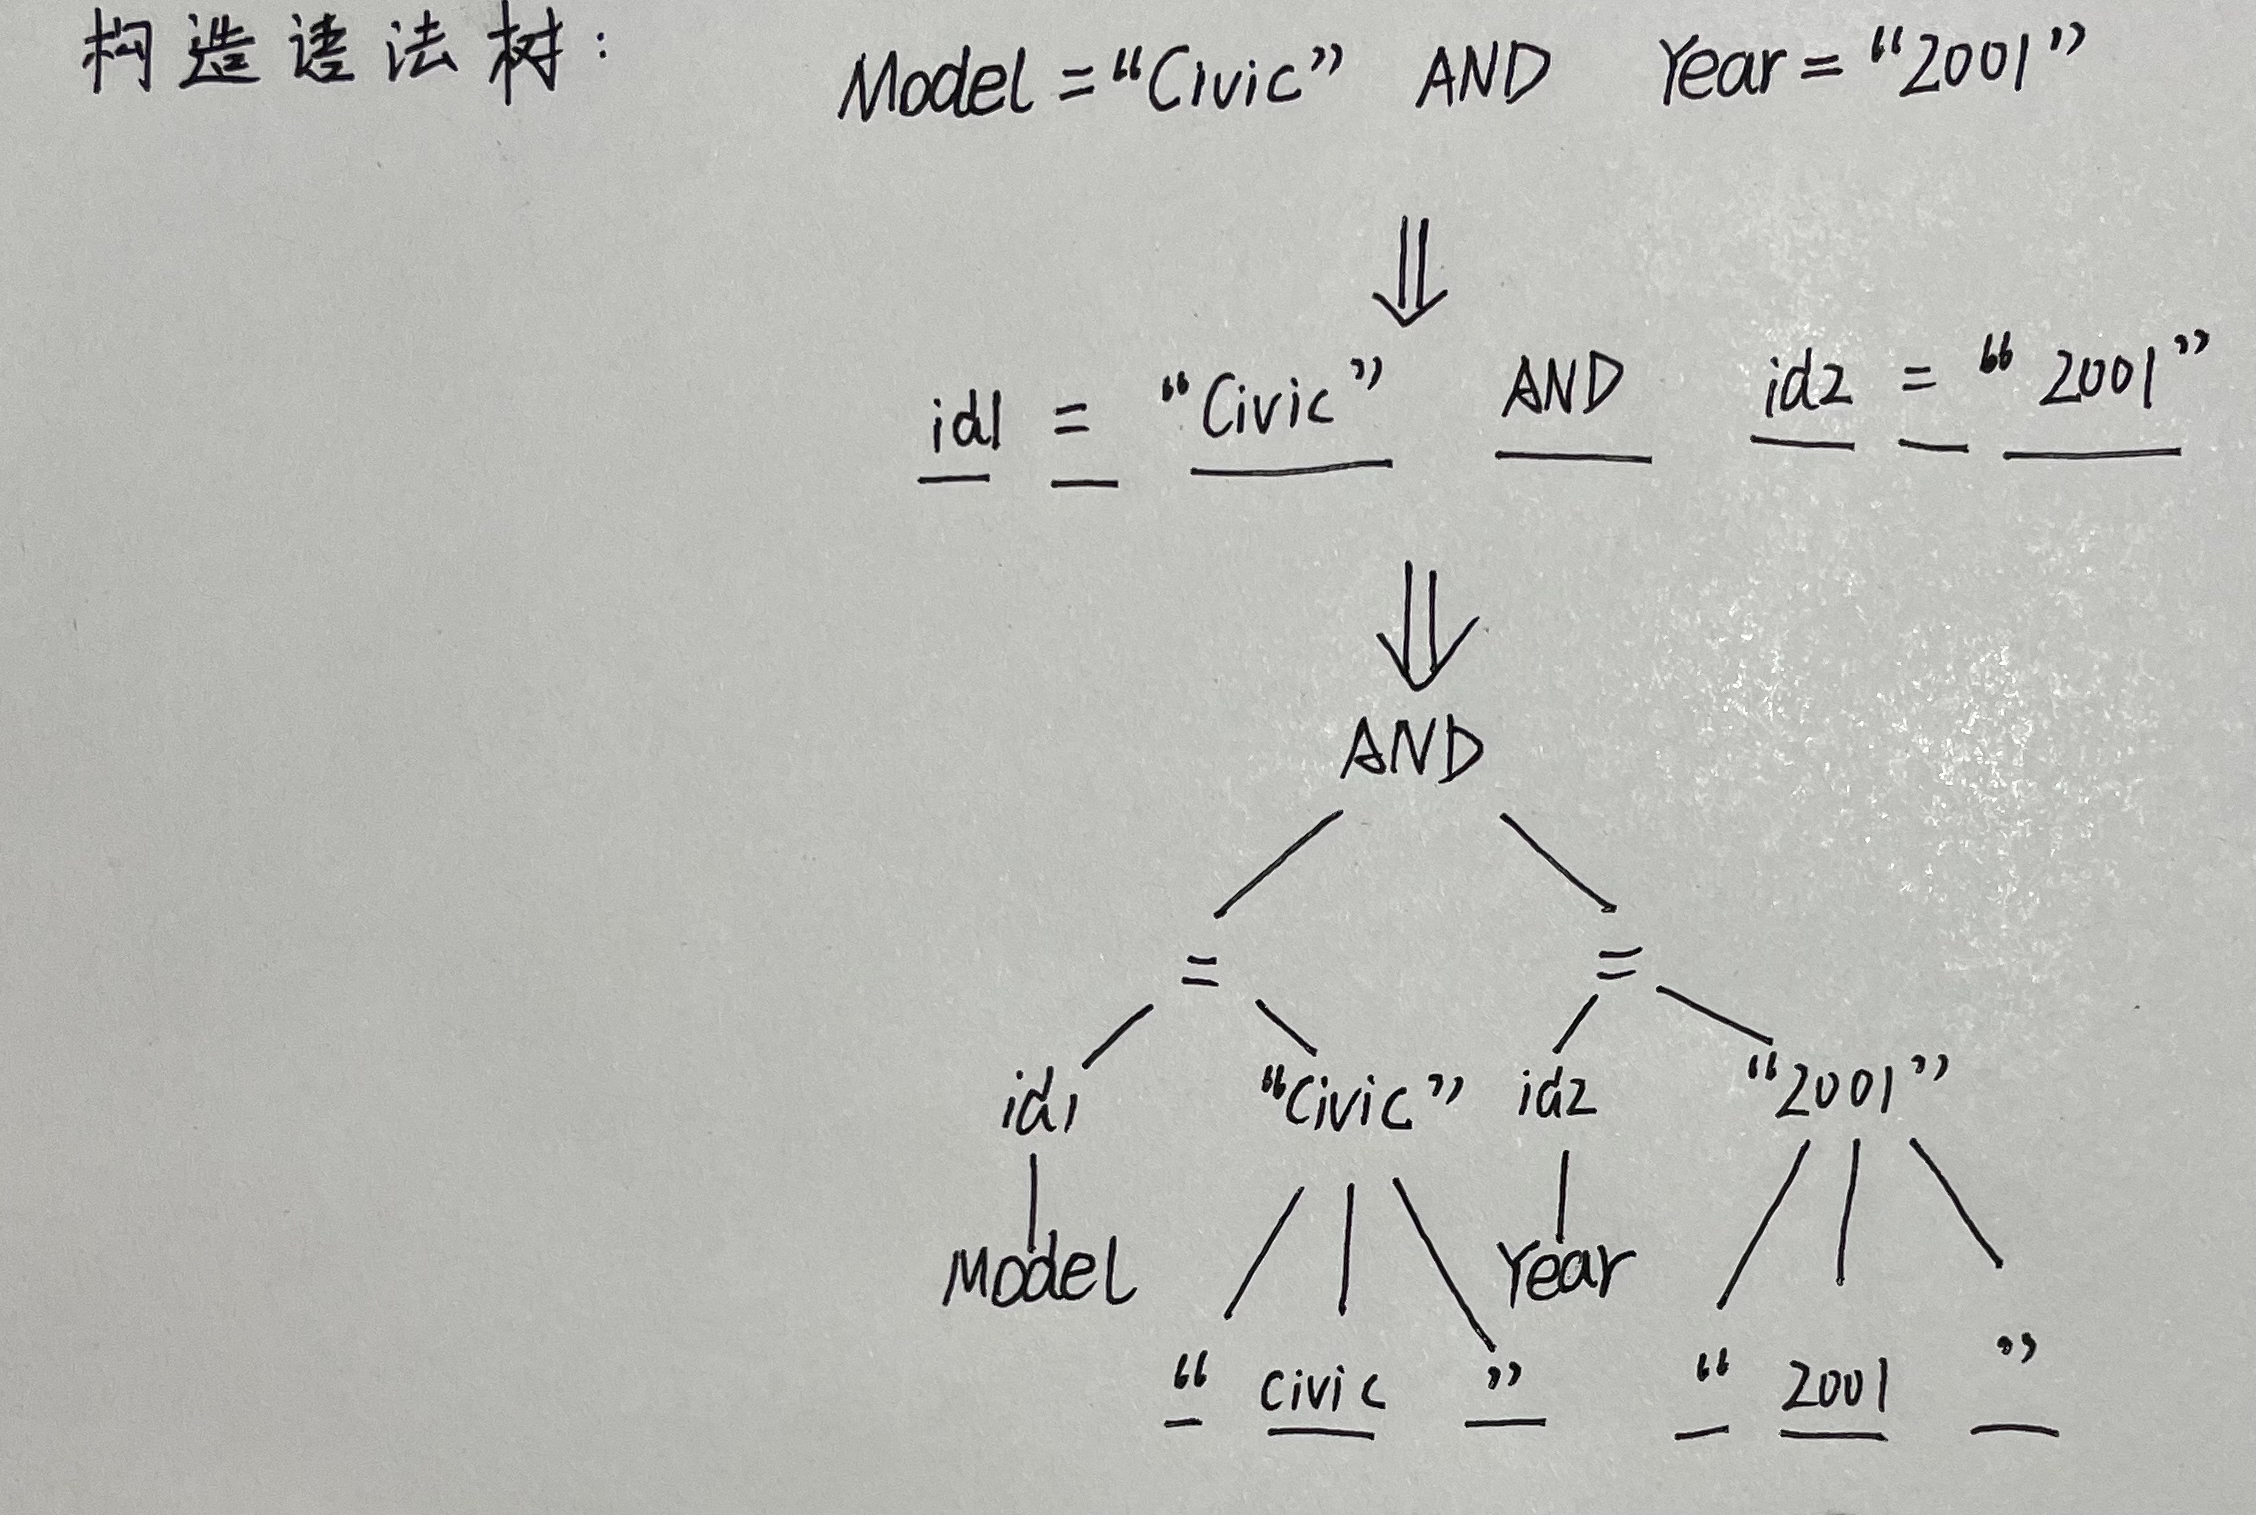 构造语法树: Model = “Civic” AND Year = “2001”
id1 = “Civic” AND id2 = “2001”
AND
= =
id1 “Civic” id2 “2001”
Model Year
“ civic ” “ 2001 ”